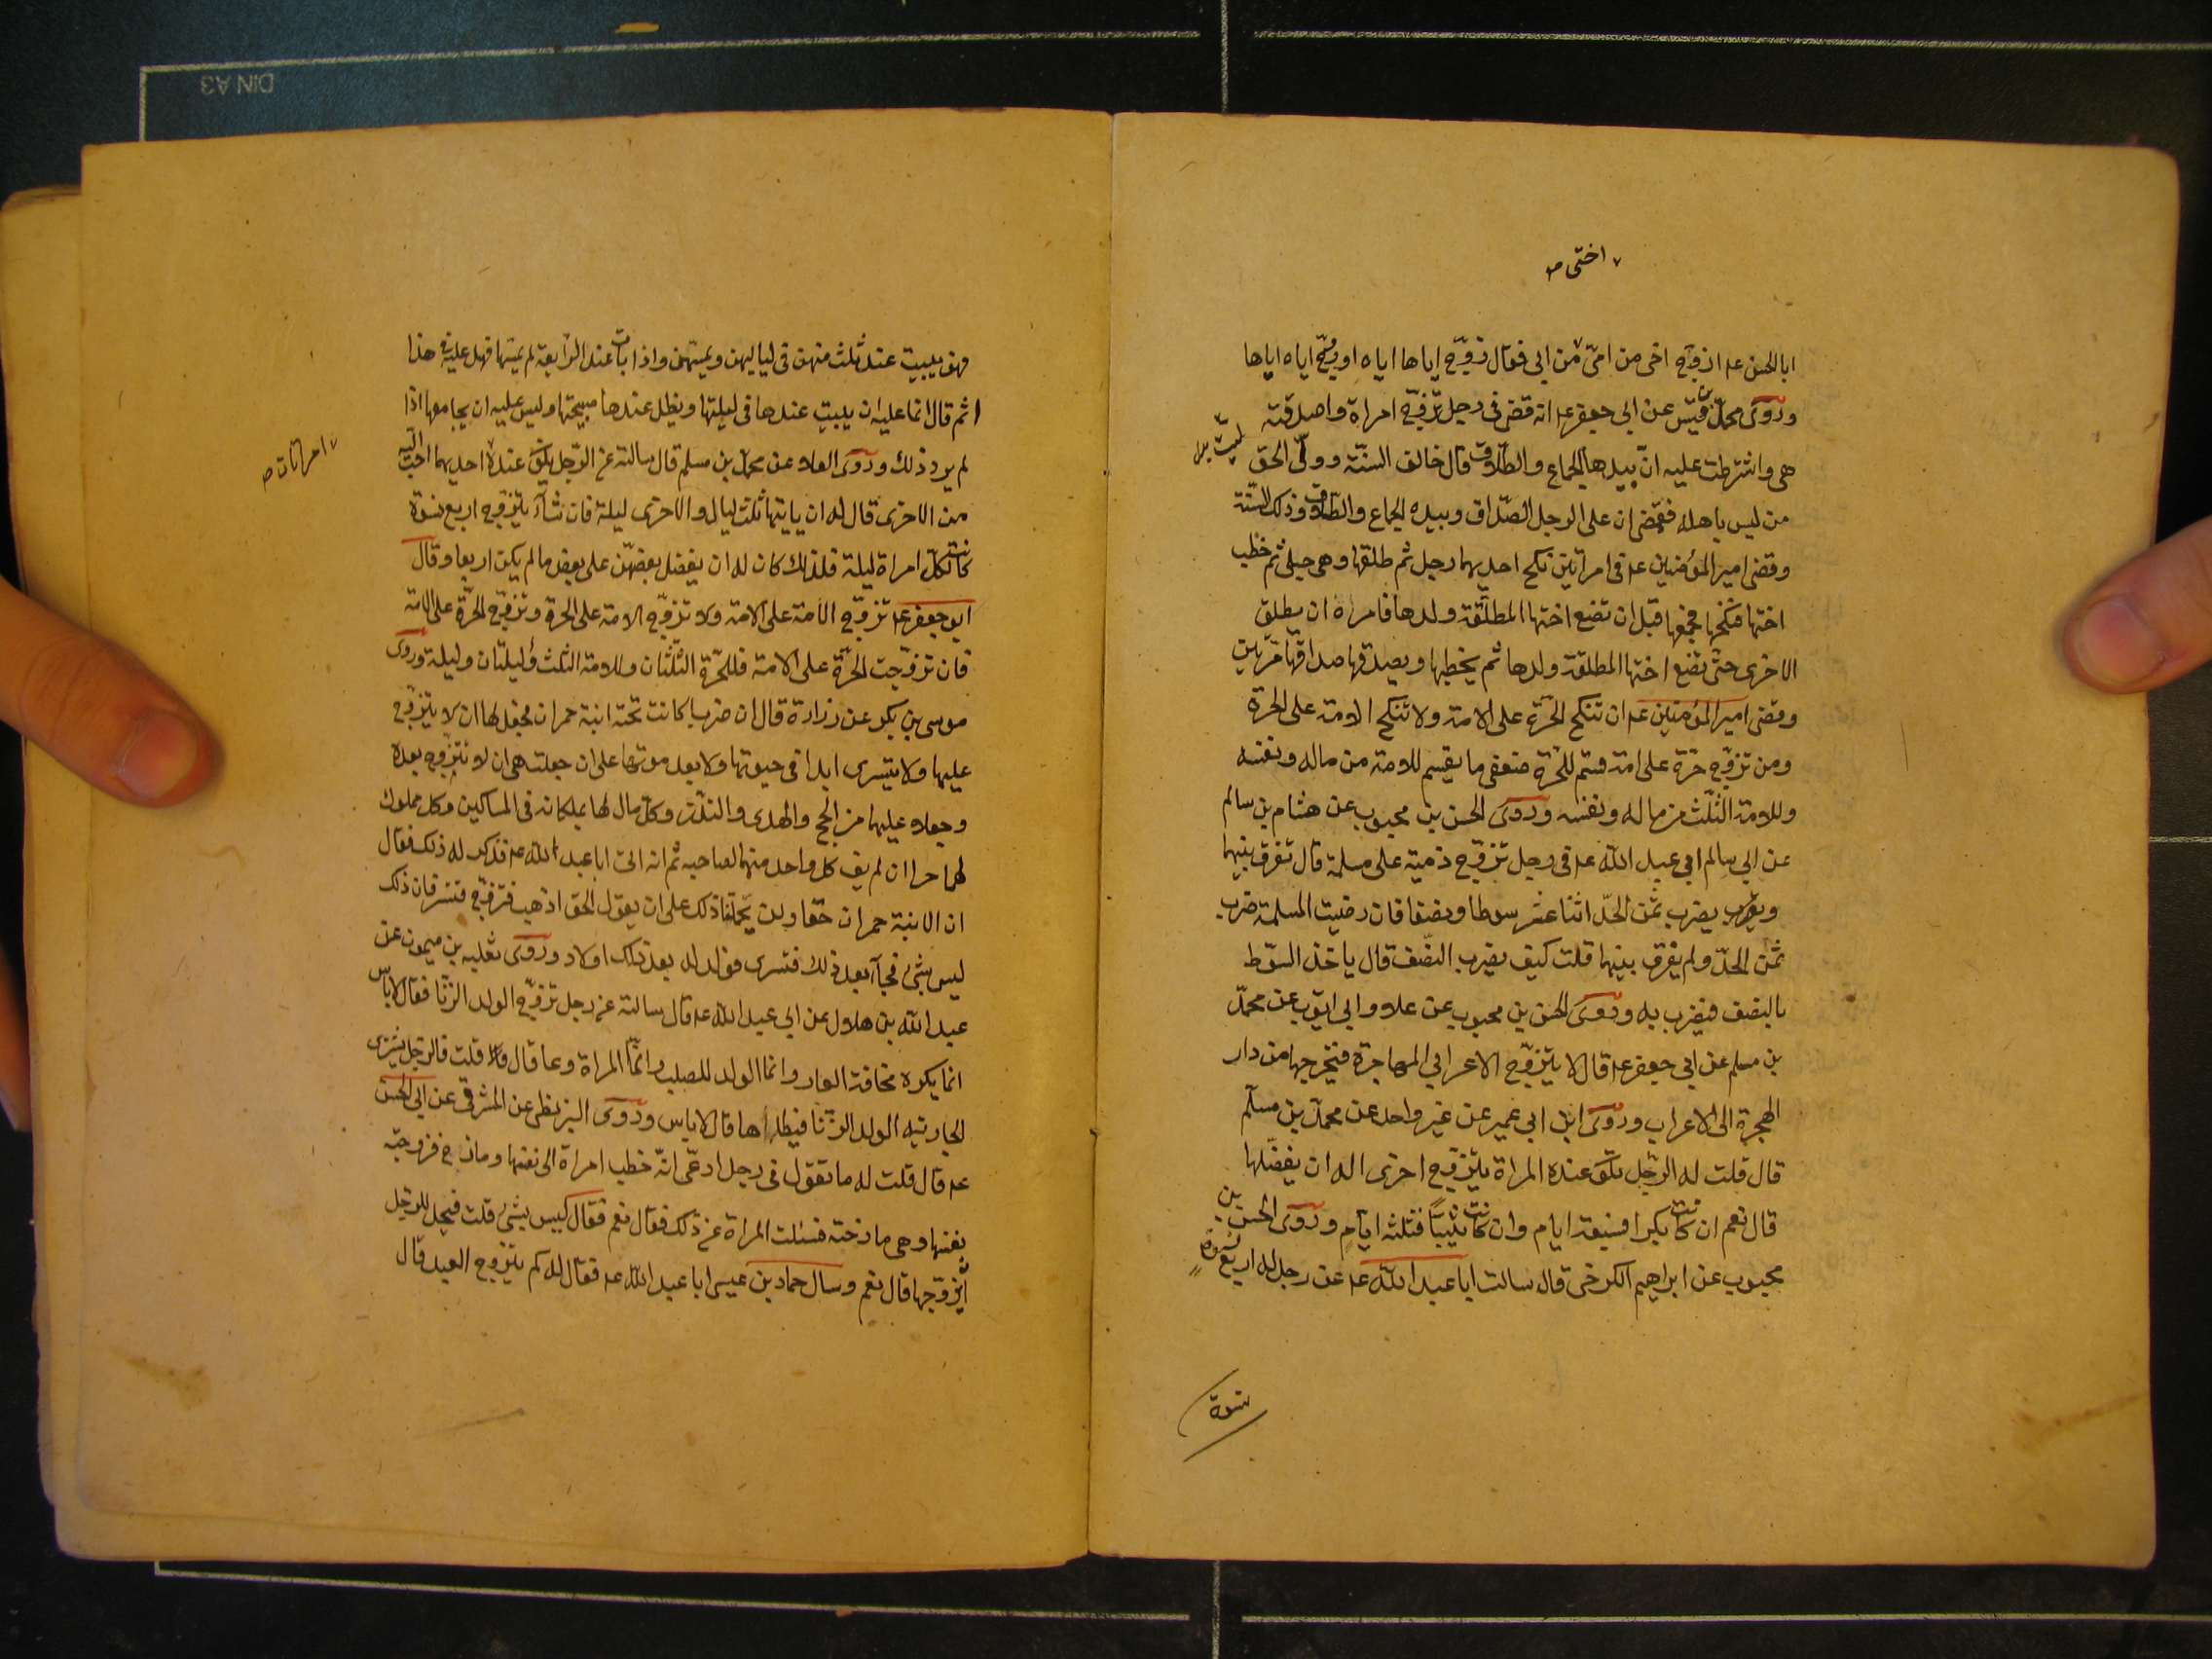 اختى صح
ابا الحسن ع ازوج اخى من امى من ابى فقال زوج اياها اياه او زوج اياه اياها
وروى محمد بن قيس عن ابى جعفر ع انه قضى فى رجل تزوج امراة واصدقته
هى واشترطت عليه ان بيدها الجماع والطلاق قال خالف السنة وولى الحق
من ليس باهله فقضى ان على الرجل الصداق وبيده الجماع والطلاق وذلك السنة
وقضى امير المؤمنين ع فى امراتين نكح احديهما رجل ثم طلقها وهى حبلى ثم خطب
اختها فنكحها فجمعها قبل ان تضع اختها المطلقة ولدها فامره ان يطلق
الاخرى حتى تضع اختها المطلقة ولدها ثم يخطبها ويصدقها صداقها مرتين
وقضى امير المؤمنين ع ان تنكح الحرة على الامة ولا تنكح الامة على الحرة
ومن تزوج حرة على امة قسم للحرة ضعفى ما يقسم للامة من ماله ونفسه
وللامة الثلث من ماله ونفسه وروى الحسن بن محبوب عن هشام بن سالم
عن ابى سالم ابى عبد الله ع فى رجل تزوج ذمية على مسلمة قال تفرق بينهما
ويضرب ثمن الحد اثنا عشر سوطا ونصفا فان رضيت المسلمة ضرب
ثمن الحد ولم يفرق بينهما قلت كيف يضرب النصف قال ياخذ السوط
بالنصف فيضرب به وروى الحسن بن محبوب عن علاء وابى ايوب عن محمد
بن مسلم عن ابى جعفر ع قال لا يتزوج الاعرابى المهاجرة فيخرجها من دار
الهجرة الى الاعراب وروى ابن ابى عمير عن غير واحد عن محمد بن مسلم
قال قلت له الرجل يكون عنده المراة يتزوج اخرى اله ان يفضلها
قال نعم ان كانت بكرا فسبعة ايام وان كانت ثيبا فثلثة ايام وروى الحسن بن
محبوب عن ابراهيم الكرخى قال سالت ابا عبد الله ع عن رجل له اربع نسوة
نسوة
فهو يبيت عند ثلث منهن فى لياليهن ويمسهن واذا بات عند الرابعة لم يمسها فهل عليه فى هذا
اثم قال انما عليه ان يبيت عندها فى ليلتها ويظل عندها صبيحتها وليس عليه ان يجامعها اذا
لم يرد ذلك وروى العلا عن محمد بن مسلم قال سالته عن الرجل يكون عنده احديهما احب اليه
امراتان صح
من الاخرى قال له ان ياتيها ثلث ليال والاخرى ليلة فان شاء يتزوج اربع نسوة
كانت لكل امراة ليلة فلذلك كان له ان يفضل بعضهن على بعض ما لم يكن اربعا وقال
ابو جعفر ع تزوج الامة على الامة ولا تزوج الامة على الحرة وتزوج الحرة على الامة
فان تزوجت الحرة على الامة فللحرة الثلثان وللامة الثلث وليلتان وليلة وروى
موسى بن بكر عن زرارة قال ان ضريسا كانت تحته ابنة حمران فجعل لها ان لا يتزوج
عليها ولا يتسرى ابدا فى حيوتها ولا بعد موتها على ان جعلت هى ان لا تتزوج بعده
وجعلا عليهما من الحج والهدى والنذر وكل مال لهما يملكانه فى المساكين وكل مملوك
لهما حرا ان لم يف كل واحد منهما لصاحبه ثم انه اتى ابا عبد الله ع فذكر له ذلك فقال
ان لابنة حمران حقا ولن يحملنا ذلك على ان نقول الحق اذهب فتزوج فتسر فان ذلك
ليس بشئ فجاء بعد ذلك فتسرى فولد له بعد ذلك اولاد وروى ثعلبه بن ميمون عن
عبد الله بن هلال عن ابى عبد الله ع قال سالته عن رجل تزوج الولد الزنا فقال لا باس
انما يكره مخافة العار وانما الولد للصلب وانما المراة وعا قال قلت فالرجل يشترى
الجارية الولد الزنا فيطاها قال لا باس وروى البزنطى عن المشرقى عن ابى الحسن
ع قال قلت له ما تقول فى رجل ادعى انه خطب امراة الى نفسها ومازح فزوجته
نفسها وهى مازحة فسئلت المراة عن ذلك فقال نعم فقال ليس بشئ قلت فيحل للرجل
ان يزوجها قال نعم وسال حماد بن عيسى ابا عبد الله ع فقال له كم يتزوج العبد قال